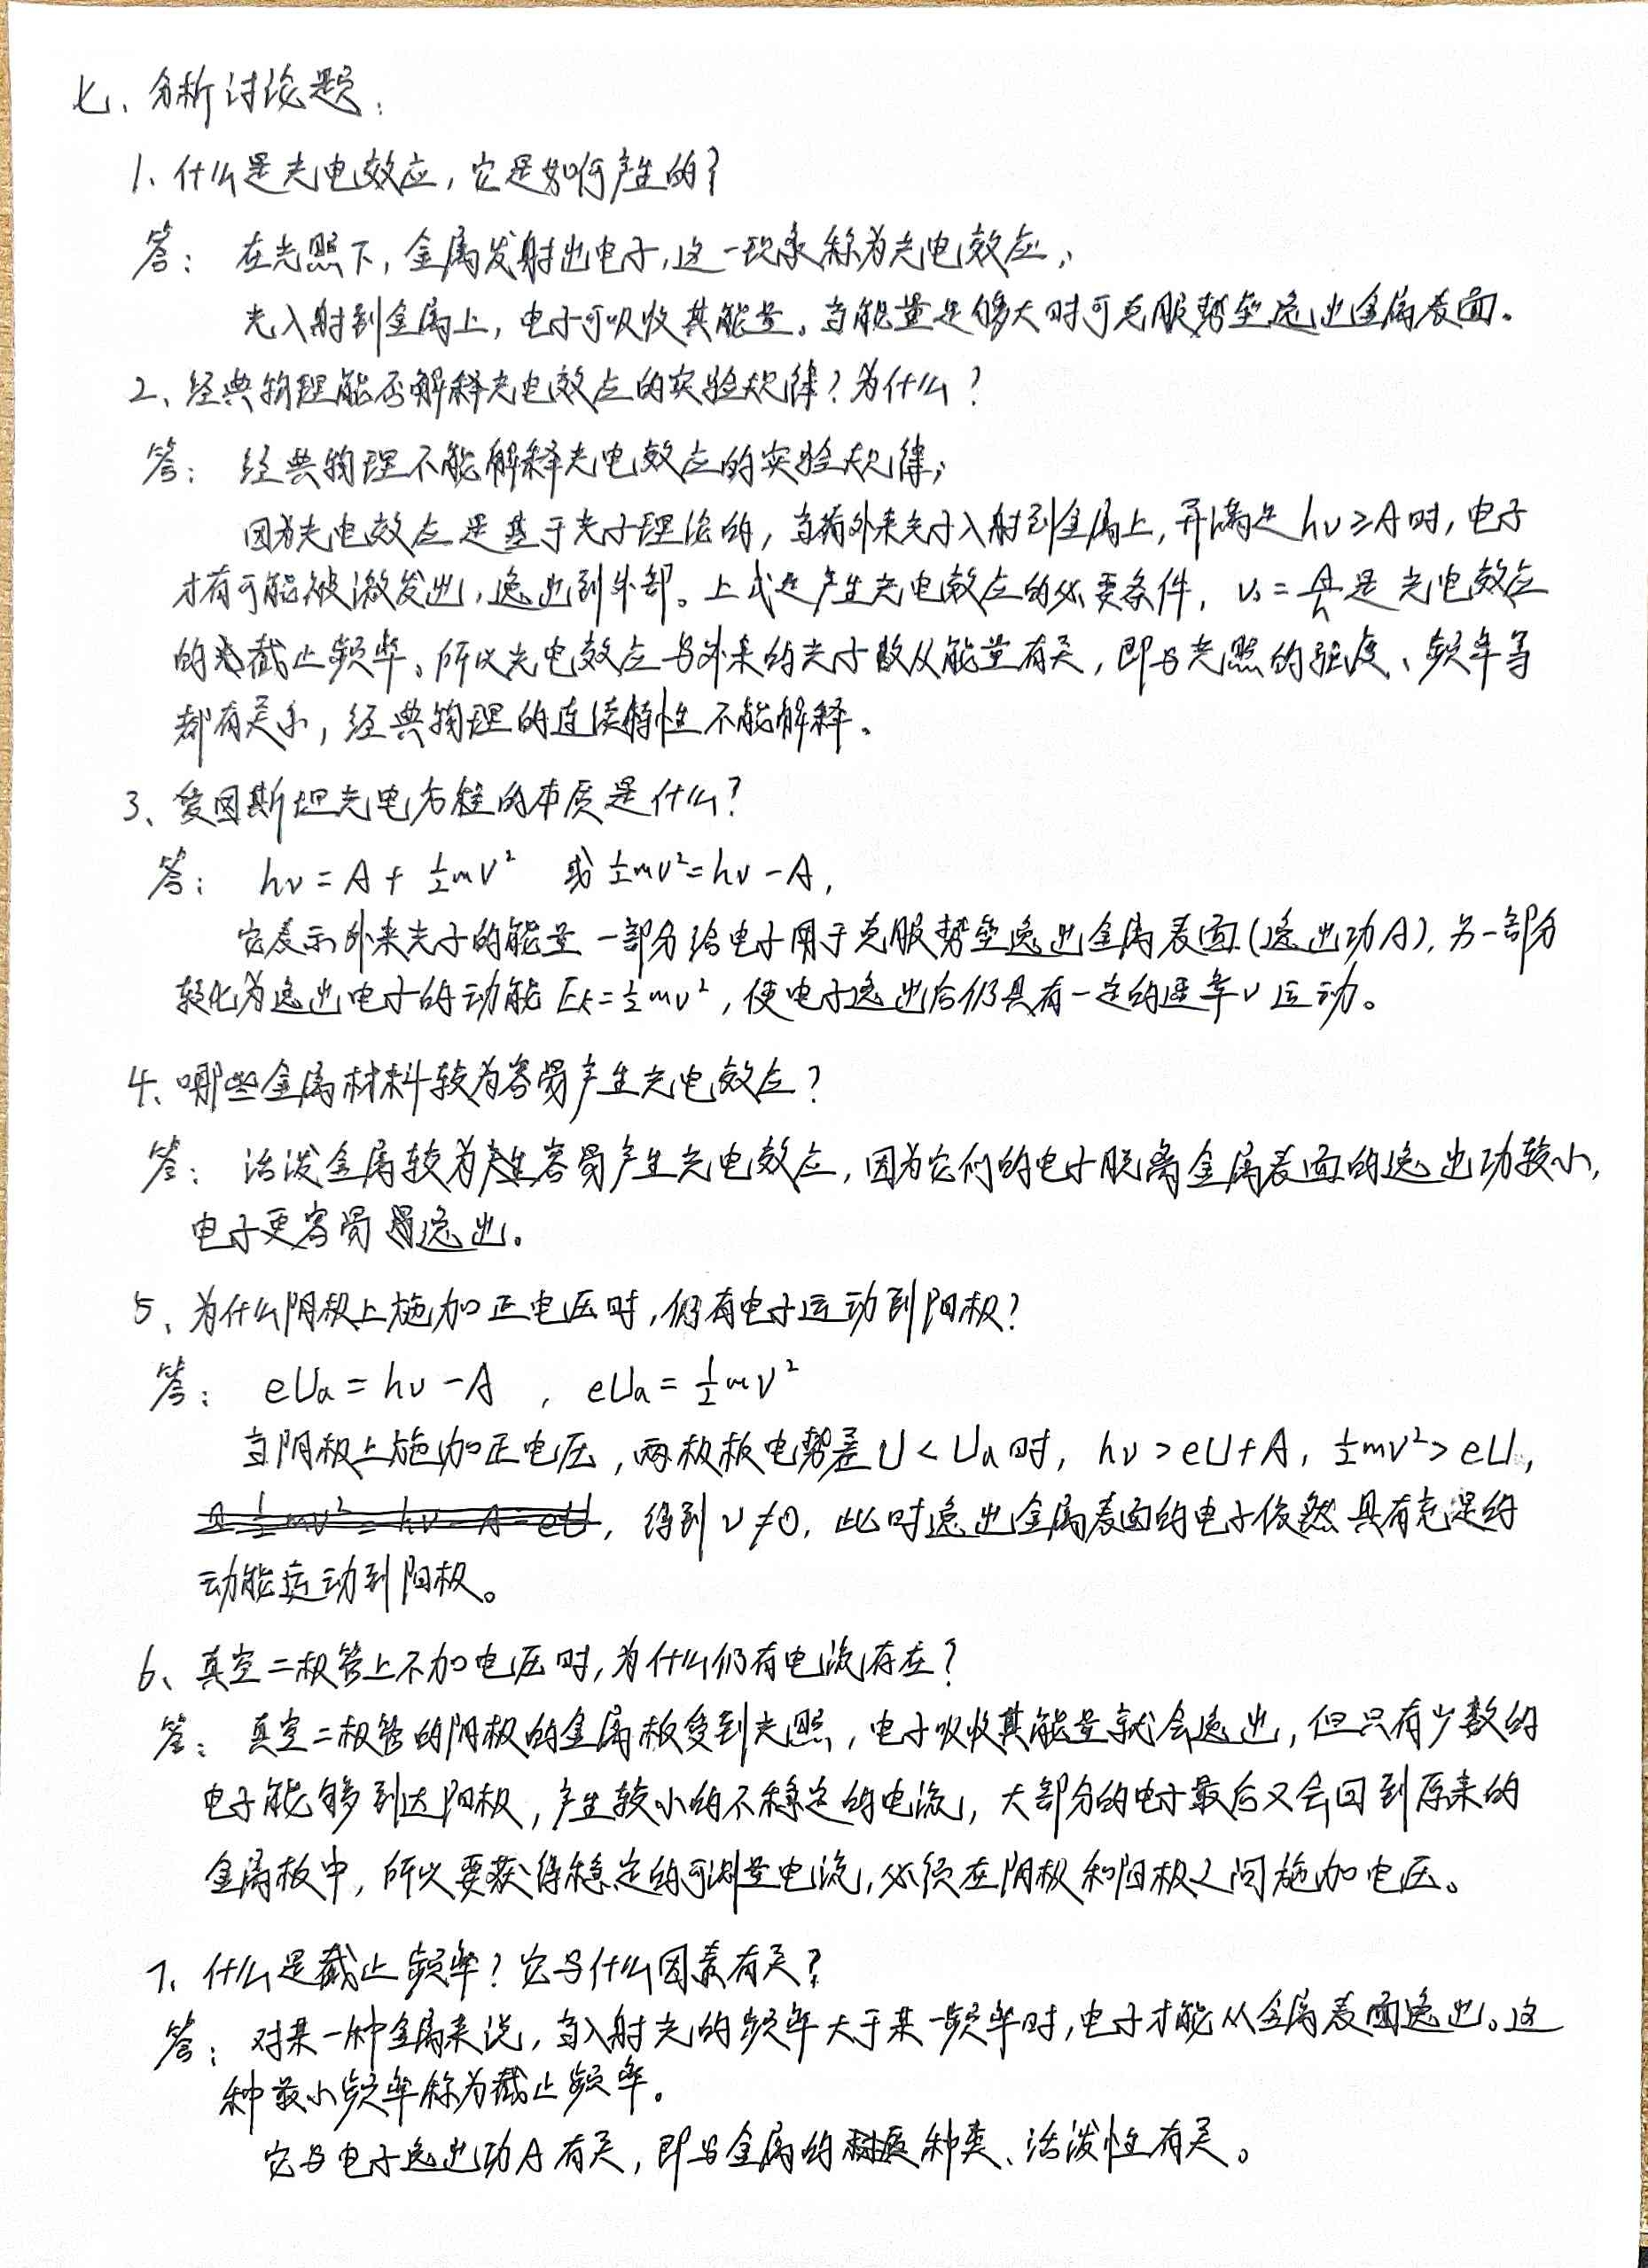 七、分析讨论题：
1、什么是光电效应，它是如何产生的？
答： 在光照下，金属发射出电子，这一现象称为光电效应；
光入射到金属上，电子可吸收其能量。当能量足够大时可克服势垒逸出金属表面。
2、经典物理能否解释光电效应的实验规律？为什么？
答： 经典物理不能解释光电效应的实验规律；
因为光电效应是基于光子理论的，当有外来光子入射到金属上，并满足 hν≥A时，电子
才有可能被激发出，逸出到外部。上式是产生光电效应的必要条件，ν₀=A/h是光电效应
的截止频率。所以光电效应与外来的光子数从能量有关，即与光照的强度、频率等
都有关系，经典物理的连续特性不能解释。
3、爱因斯坦光电方程的本质是什么？
答： hν=A+½mv² 或 ½mv²=hν-A，
它表示外来光子的能量一部分给电子用于克服势垒逸出金属表面（逸出功A），另一部分
转化为逸出电子的动能 Ek=½mv²，使电子逸出后仍具有一定的速率v运动。
4、哪些金属材料较为容易产生光电效应？
答： 活泼金属较为容易产生光电效应，因为它们的电子脱离金属表面的逸出功较小，
电子更容易逸出。
5、为什么阴极上施加正电压时，仍有电子运动到阳极？
答： eUa=hν-A ，eUa=½mv²
当阴极上施加正电压，两极板电势差U<Ua时，hν>eU+A，½mv²>eU，
得到v≠0，此时逸出金属表面的电子依然具有充足的
动能运动到阳极。
6、真空二极管上不加电压时，为什么仍有电流存在？
答： 真空二极管的阴极的金属板受到光照，电子吸收其能量就会逸出，但只有少数的
电子能够到达阳极，产生较小的不稳定的电流，大部分的电子最后又会回到原来的
金属板中，所以要获得稳定的可测量电流，必须在阴极和阳极之间施加电压。
7、什么是截止频率？它与什么因素有关？
答： 对某一种金属来说，当入射光的频率大于某一频率时，电子才能从金属表面逸出。这
种最小频率称为截止频率。
它与电子逸出功A有关，即与金属的种类、活泼性有关。